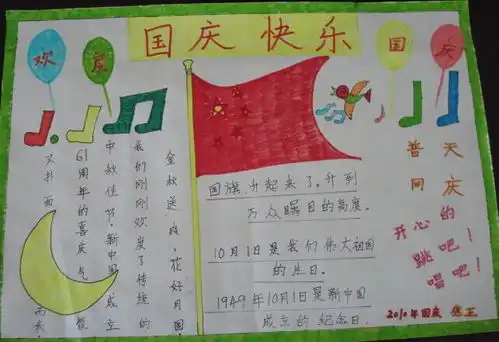 国庆快乐
欢
度
国
庆
金秋送
枝,花好月圆,
我们刚刚欢度了传统的
中秋佳节,新中国成立
61周年的喜庆气
又扑面
而来
国旗升起来了,升到
万众瞩目的高度。
10月1日是我们伟大祖国
的生日。
1949年10月1日是新中国
成立的纪念日。
普天
同庆
开心的
跳吧!
唱吧!
2010年国庆